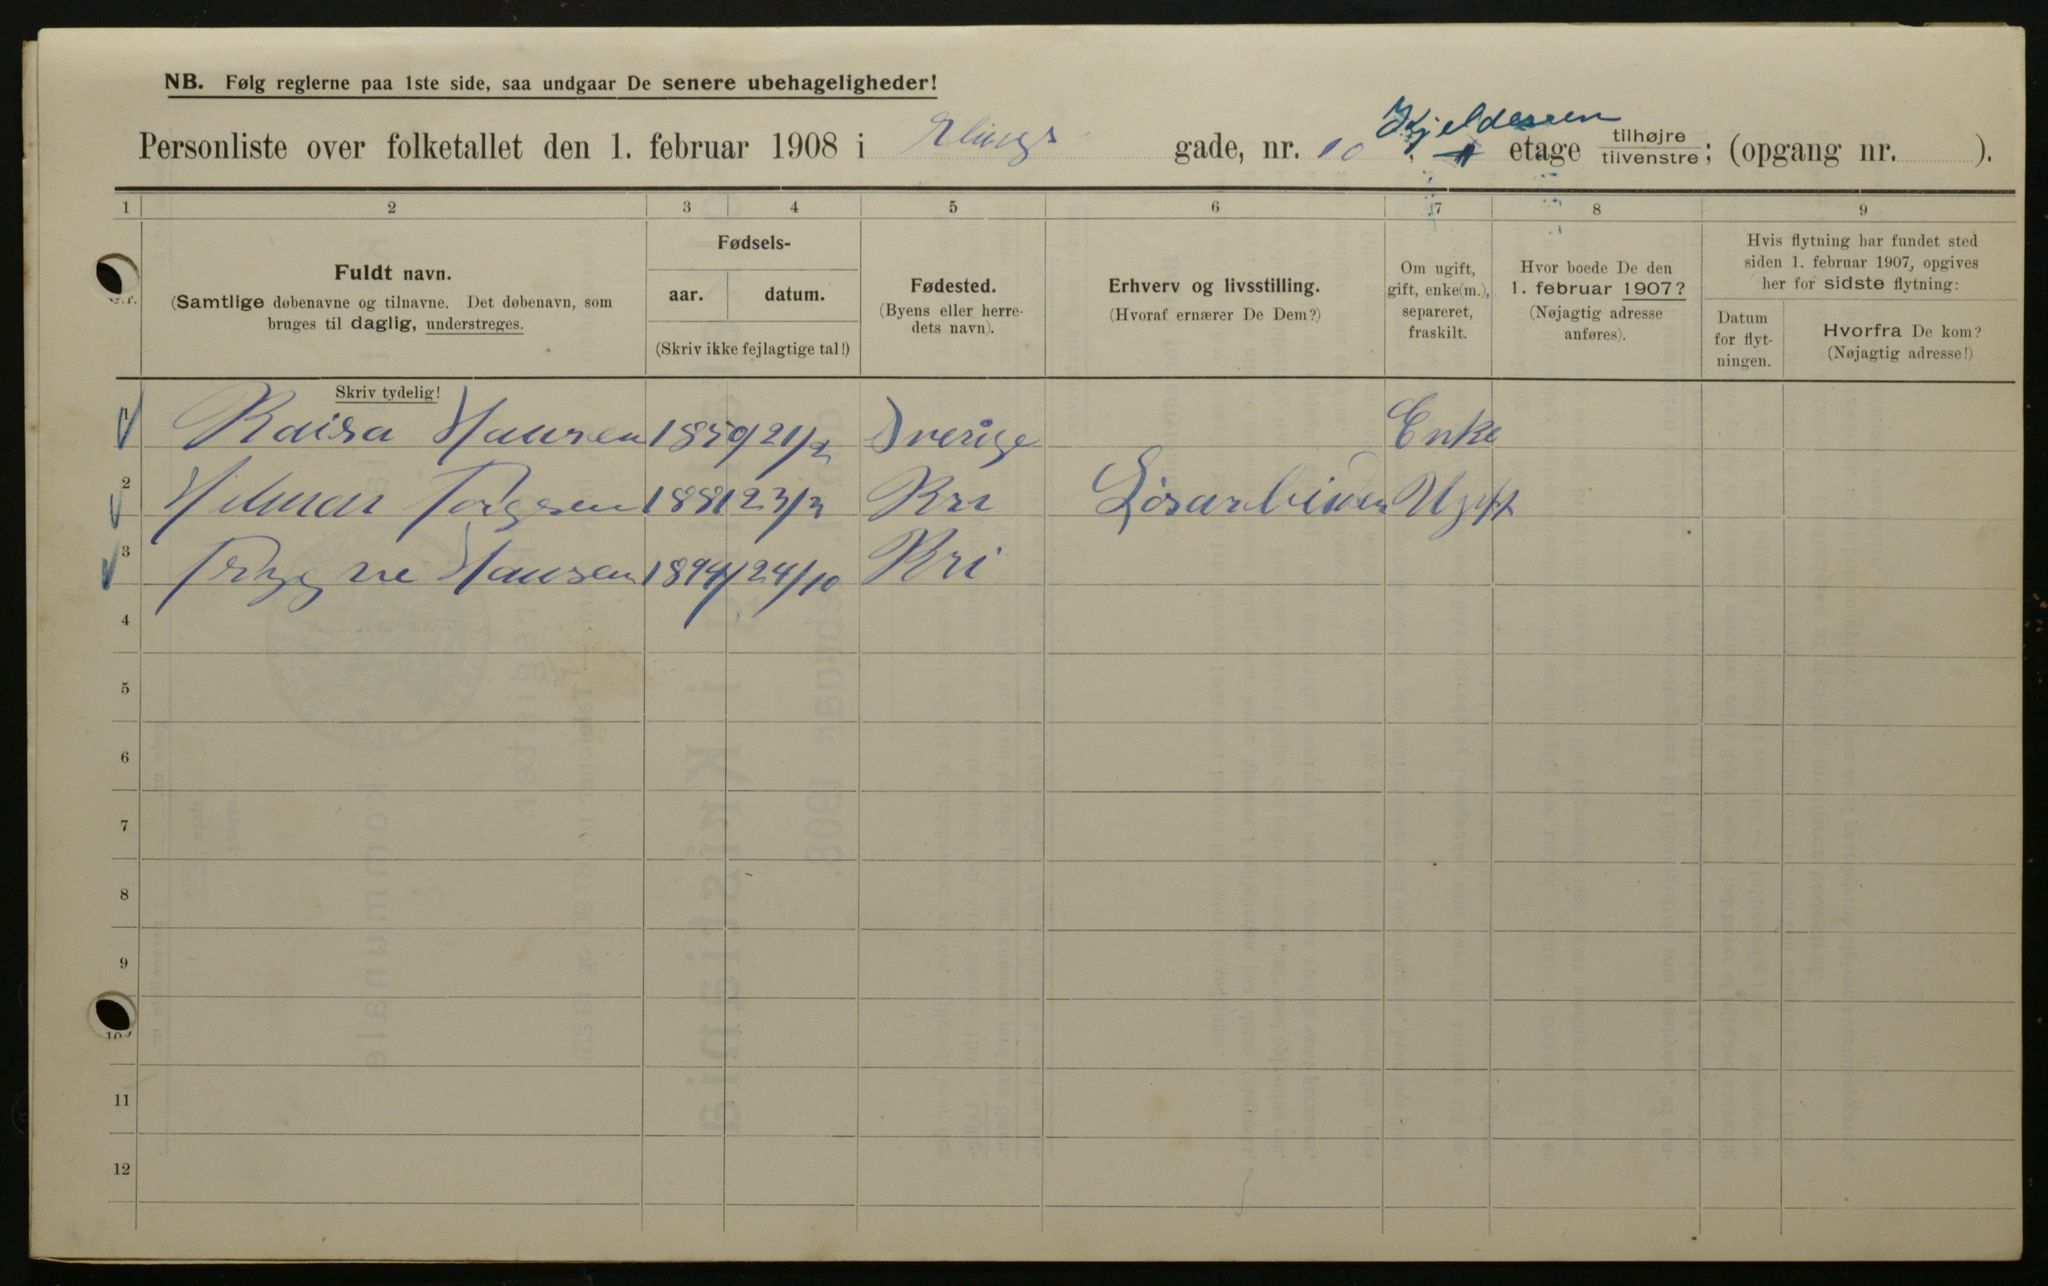 NB. Følg reglerne paa 1ste side, saa undgaar De senere ubehageligheder!
Personliste over folketallet den 1. februar 1908 i Elings gade, nr. 10 Kjelderen etage tilhøjre tilvenstre; (opgang nr. ).
1 2 3 4 5 6 7 8 9
Nr. Fuldt navn. (Samtlige døbenavne og tilnavne. Det døbenavn, som bruges til daglig, understreges. Skriv tydelig!
Fødsels- aar. datum. (Skriv ikke fejlagtige tal!)
Fødested. (Byens eller herredets navn).
Erhverv og livsstilling. (Hvoraf ernærer De Dem?)
Om ugift, gift, enke(m.), separeret, fraskilt.
Hvor boede De den 1. februar 1907? (Nøjagtig adresse anføres).
Hvis flytning har fundet sted siden 1. februar 1907, opgives her for sidste flytning:
Datum for flytningen.
Hvorfra De kom? (Nøjagtig adresse!)
1 Raisa Hansen 1859 21/2 Sverige Enke
2 Hilmar Torgersen 1881 23/3 Kri Løsarbider Ugift
3 Trygve Hansen 1894 24/10 Kri
4
5
6
7
8
9
10
11
12